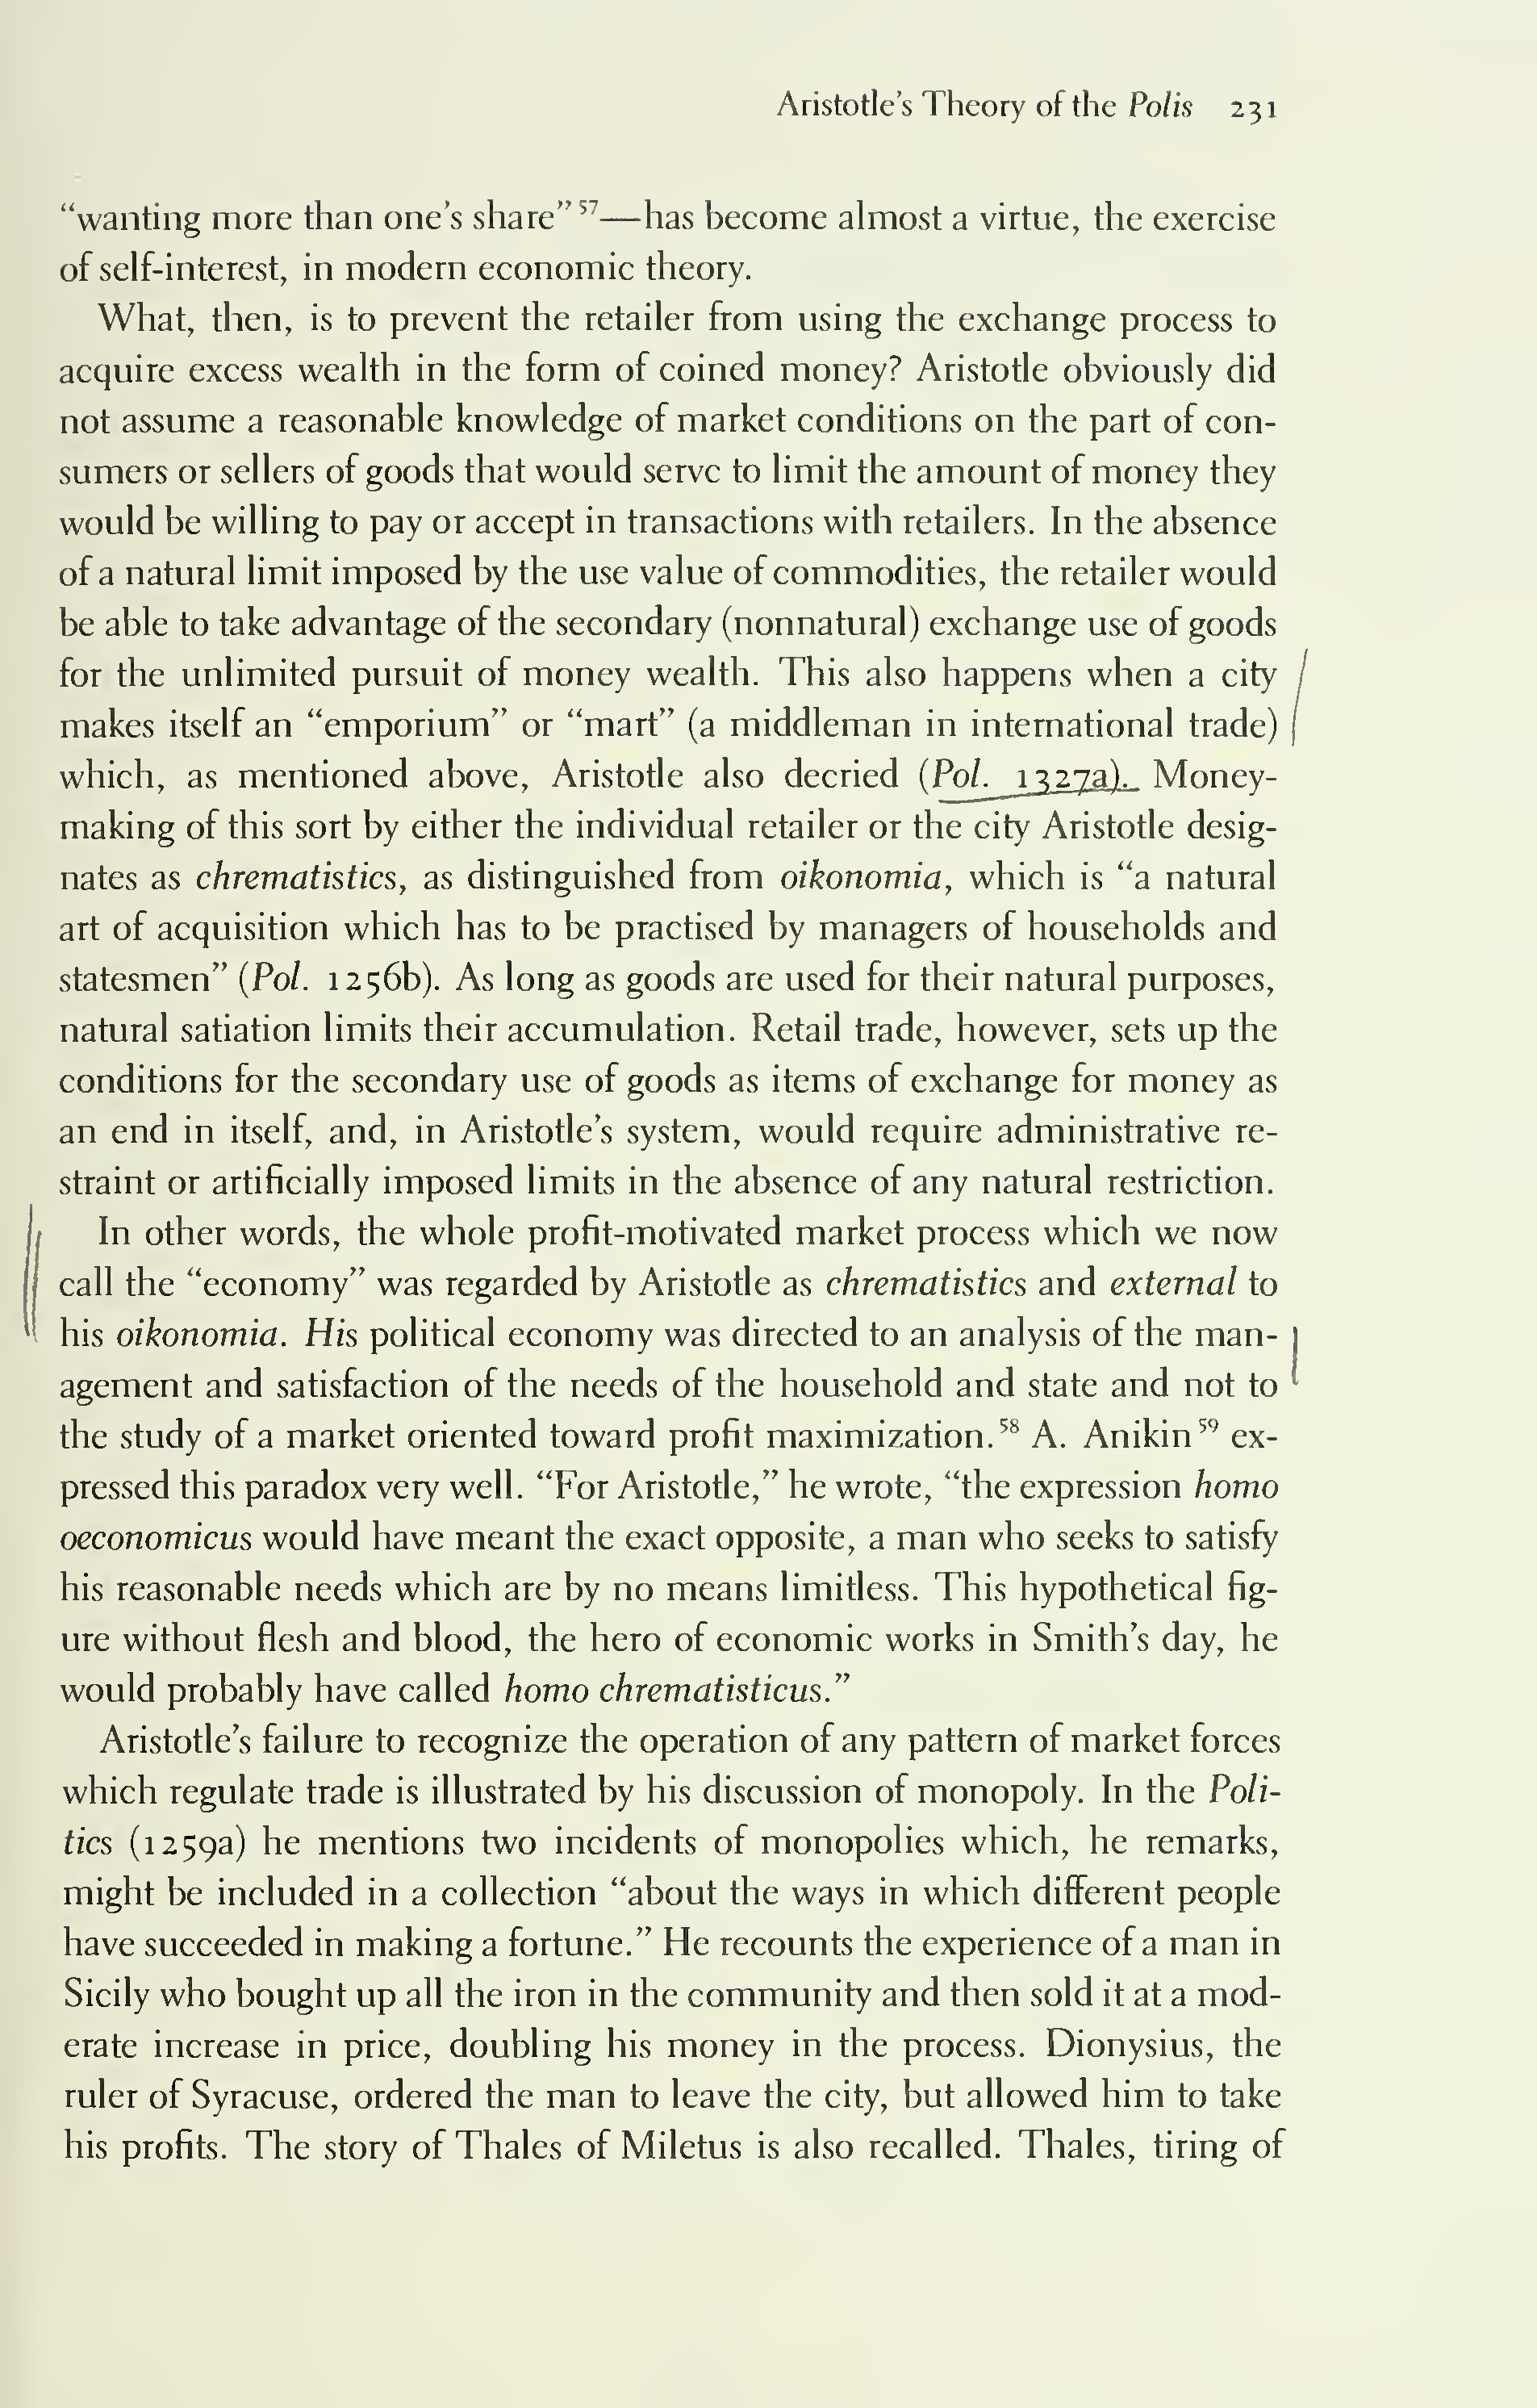 Aristotle's Theory of the Polis 231
“wanting more than one's share”57—has become almost a virtue, the exercise
of self-interest, in modern economic theory.
What, then, is to prevent the retailer from using the exchange process to
acquire excess wealth in the form of coined money? Aristotle obviously did
not assume a reasonable knowledge of market conditions on the part of con-
sumers or sellers of goods that would serve to limit the amount of money they
would be willing to pay or accept in transactions with retailers. In the absence
of a natural limit imposed by the use value of commodities, the retailer would
be able to take advantage of the secondary (nonnatural) exchange use of goods
for the unlimited pursuit of money wealth. This also happens when a city
makes itself an “emporium” or “mart” (a middleman in international trade)
which, as mentioned above, Aristotle also decried (Pol. 1327a). Money-
making of this sort by either the individual retailer or the city Aristotle desig-
nates as chrematistics, as distinguished from oikonomia, which is “a natural
art of acquisition which has to be practised by managers of households and
statesmen” (Pol. 1256b). As long as goods are used for their natural purposes,
natural satiation limits their accumulation. Retail trade, however, sets up the
conditions for the secondary use of goods as items of exchange for money as
an end in itself, and, in Aristotle's system, would require administrative re-
straint or artificially imposed limits in the absence of any natural restriction.
In other words, the whole profit-motivated market process which we now
call the “economy” was regarded by Aristotle as chrematistics and external to
his oikonomia. His political economy was directed to an analysis of the man-
agement and satisfaction of the needs of the household and state and not to
the study of a market oriented toward profit maximization.58 A. Anikin59 ex-
pressed this paradox very well. “For Aristotle,” he wrote, “the expression homo
oeconomicus would have meant the exact opposite, a man who seeks to satisfy
his reasonable needs which are by no means limitless. This hypothetical fig-
ure without flesh and blood, the hero of economic works in Smith's day, he
would probably have called homo chrematisticus.”
Aristotle's failure to recognize the operation of any pattern of market forces
which regulate trade is illustrated by his discussion of monopoly. In the Poli-
tics (1259a) he mentions two incidents of monopolies which, he remarks,
might be included in a collection “about the ways in which different people
have succeeded in making a fortune.” He recounts the experience of a man in
Sicily who bought up all the iron in the community and then sold it at a mod-
erate increase in price, doubling his money in the process. Dionysius, the
ruler of Syracuse, ordered the man to leave the city, but allowed him to take
his profits. The story of Thales of Miletus is also recalled. Thales, tiring of